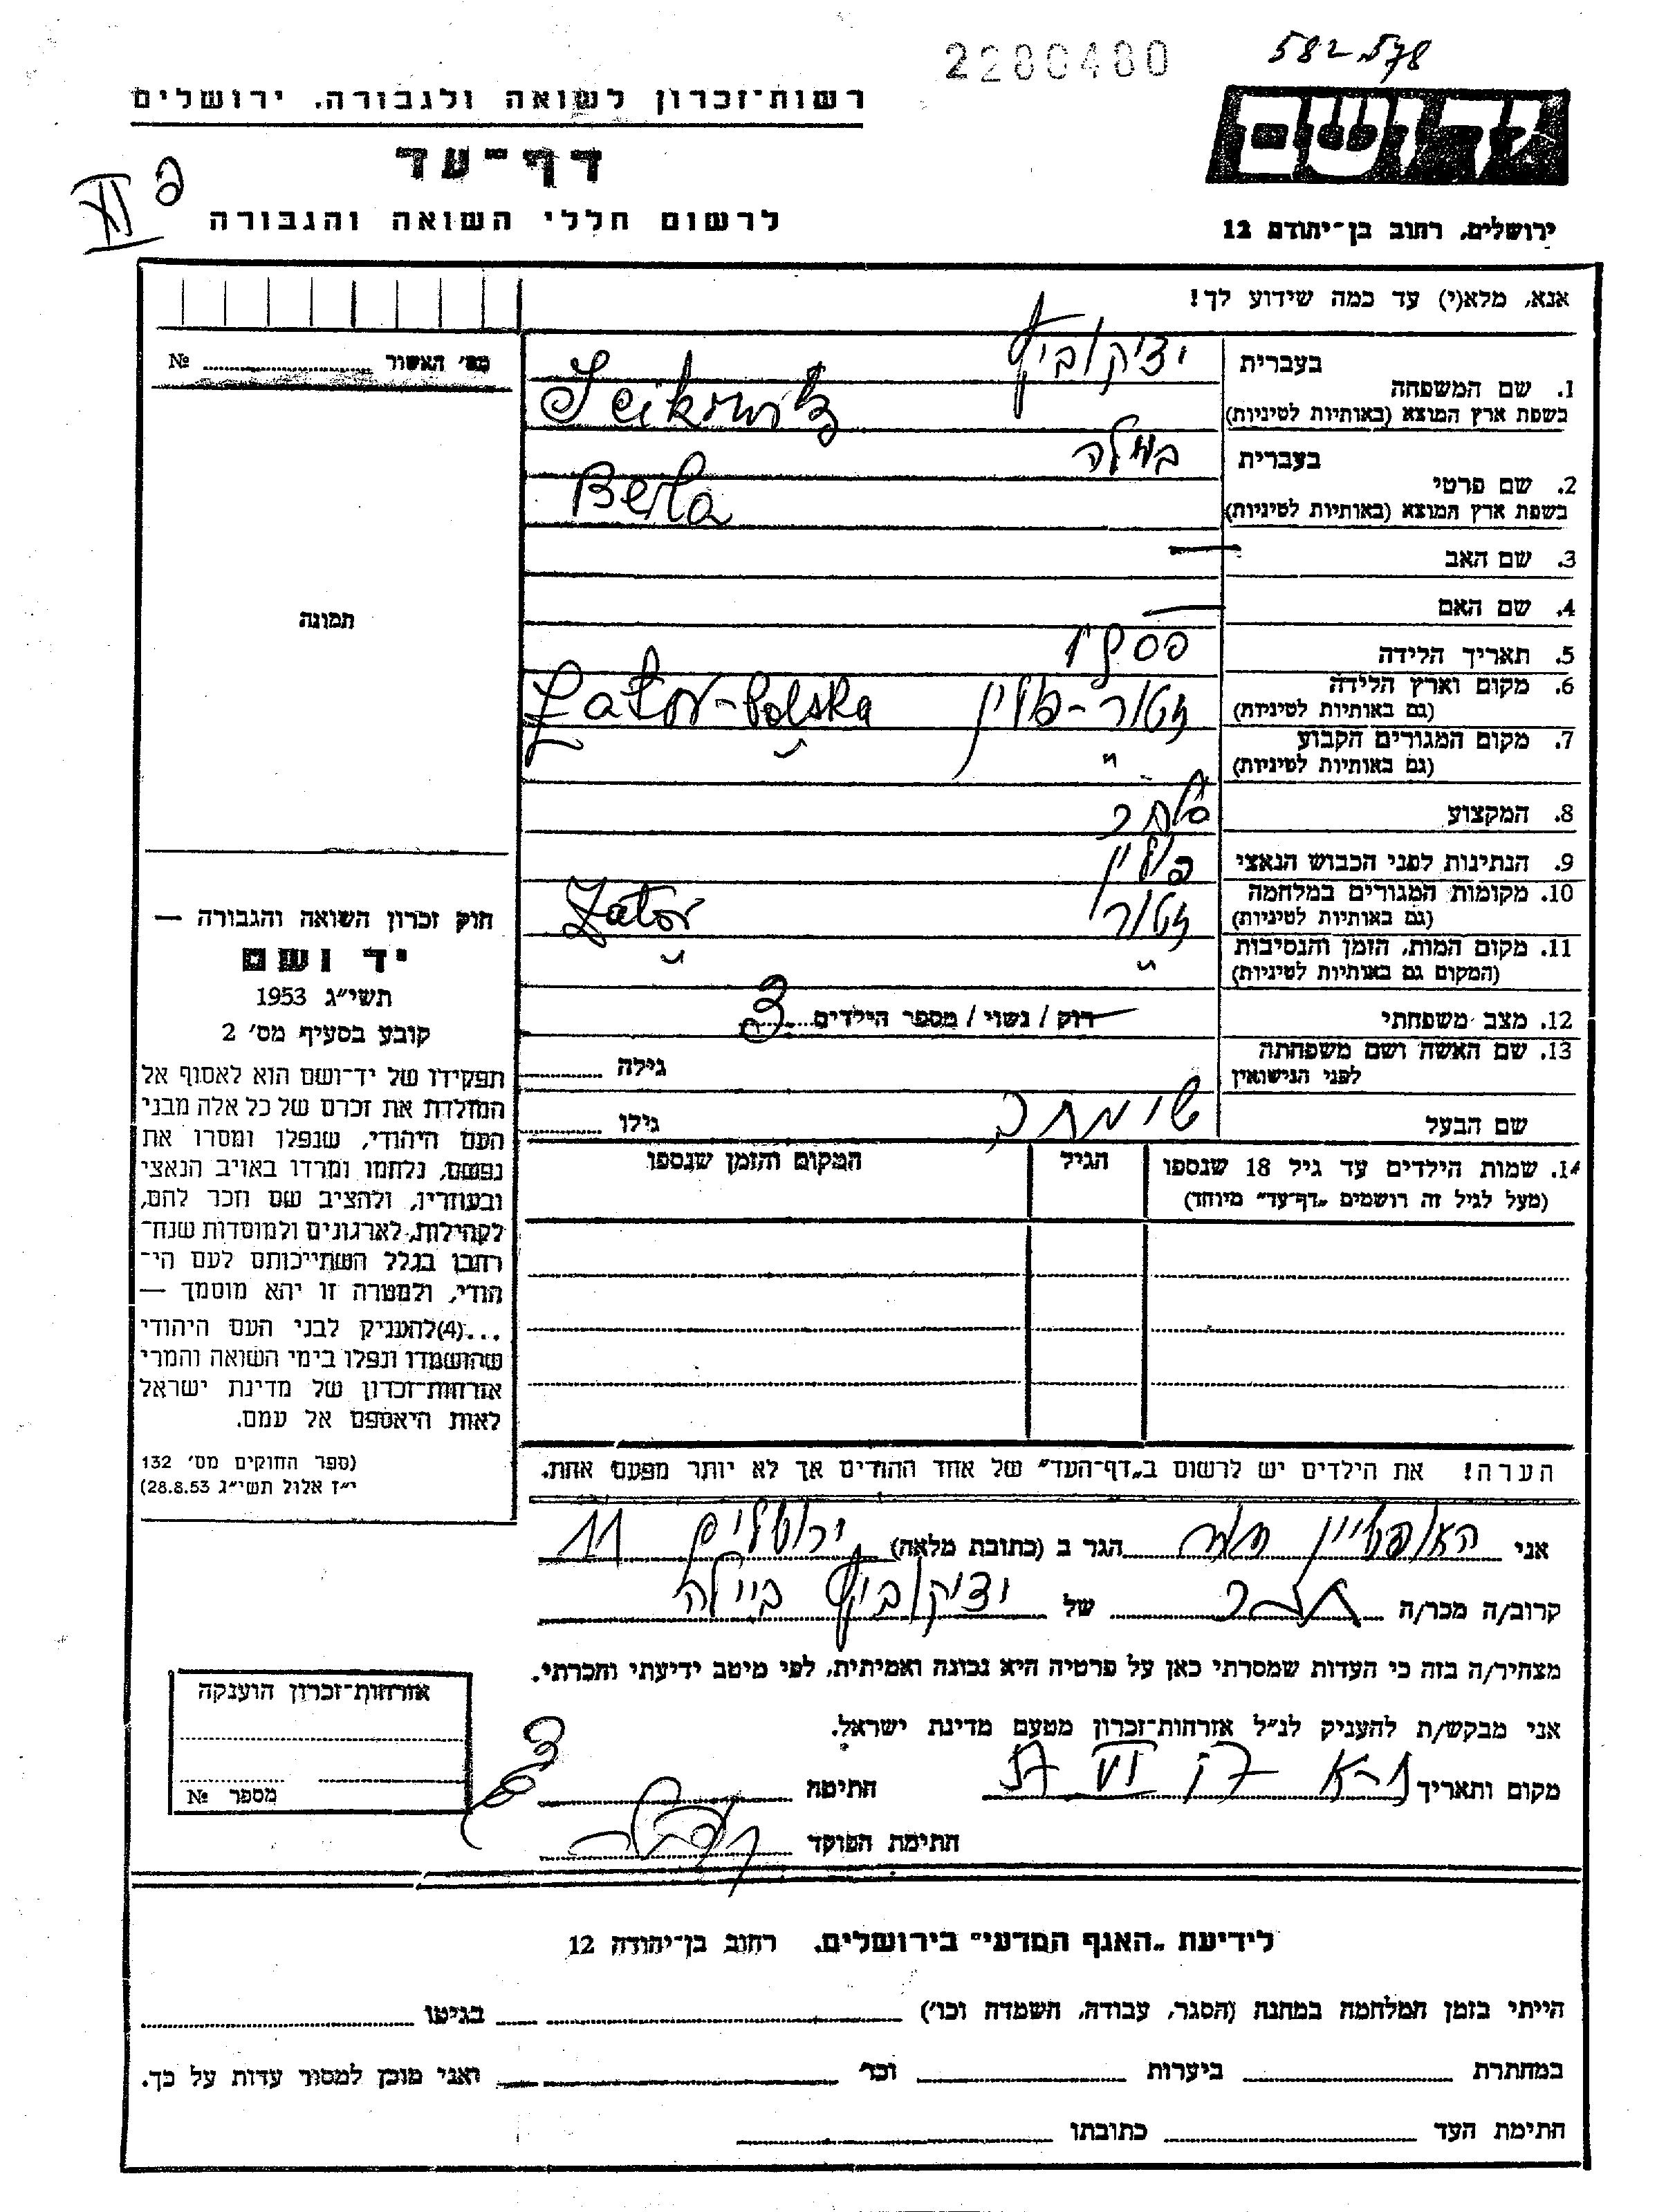 2280480
582578
רשות־זכרון לשואה ולגבורה, ירושלים
דף־עד
לרשום חללי השואה והגבורה
יד ושם
ירושלים, רחוב בן־יהודה 12
אנא, מלא(י) עד כמה שידוע לך!
מס' האשור № 
1. שם המשפחה
בעברית יציקוביץ
בשפת ארץ המוצא (באותיות לטיניות)
2. שם פרטי
בעברית ביילה
בשפת ארץ המוצא (באותיות לטיניות)
3. שם האב —
4. שם האם —
5. תאריך הלידה
6. מקום וארץ הלידה זטור-פולין Zator-Polska
(גם באותיות לטיניות)
7. מקום המגורים הקבוע " "
(גם באותיות לטיניות)
8. המקצוע
9. הנתינות לפני הכבוש הנאצי פולין
10. מקומות המגורים במלחמה זטור Zator
(גם באותיות לטיניות)
11. מקום המות, הזמן והנסיבות " "
(המקום גם באותיות לטיניות)
12. מצב משפחתי רוק / נשוי / מספר הילדים 3
13. שם האשה ושם משפחתה
לפני הנישואין
גילה
שם הבעל
גילו
14. שמות הילדים עד גיל 18 שנספו
(מעל לגיל זה רושמים „דף־עד" מיוחד)
הגיל
המקום והזמן שנספו
הערה! את הילדים יש לרשום ב„דף־העד" של אחד ההורים אך לא יותר מפעם אחת.
תמונה
חוק זכרון השואה והגבורה —
יד ושם
תשי״ג 1953
קובע בסעיף מס' 2
תפקידו של יד־ושם הוא לאסוף אל
המולדת את זכרם של כל אלה מבני
העם היהודי, שנפלו ומסרו את
נפשם, נלחמו ומרדו באויב הנאצי
ובעוזריו, ולהציב שם וזכר להם,
לקהילות, לארגונים ולמוסדות שנח־
רבו בגלל השתייכותם לעם הי־
הודי, ולמטרה זו יהא מוסמך —
...(4) להעניק לבני העם היהודי
שהושמדו ונפלו בימי השואה והמרי
אזרחות־זכרון של מדינת ישראל
לאות היאספם אל עמם.
(ספר החוקים מס' 132
י״ז אלול תשי״ג 28.8.53)
אני הגר ב (כתובת מלאה) ירושלים
קרוב/ה מכר/ה של יציקוביץ ביילה
מצהיר/ה בזה כי העדות שמסרתי כאן על פרטיה היא נכונה ואמיתית, לפי מיטב ידיעתי והכרתי.
אני מבקש/ת להעניק לנ״ל אזרחות־זכרון מטעם מדינת ישראל.
מקום ותאריך ת-א
חתימה
חתימת הפוקד
אזרחות־זכרון הוענקה
מספר №
לידיעת „האגף המדעי" בירושלים, רחוב בן־יהודה 12
הייתי בזמן המלחמה במחנה (הסגר, עבודה, השמדה וכו') בגיטו
במחתרת ביערות וכו' ואני מוכן למסור עדות על כך.
חתימת העד כתובתו